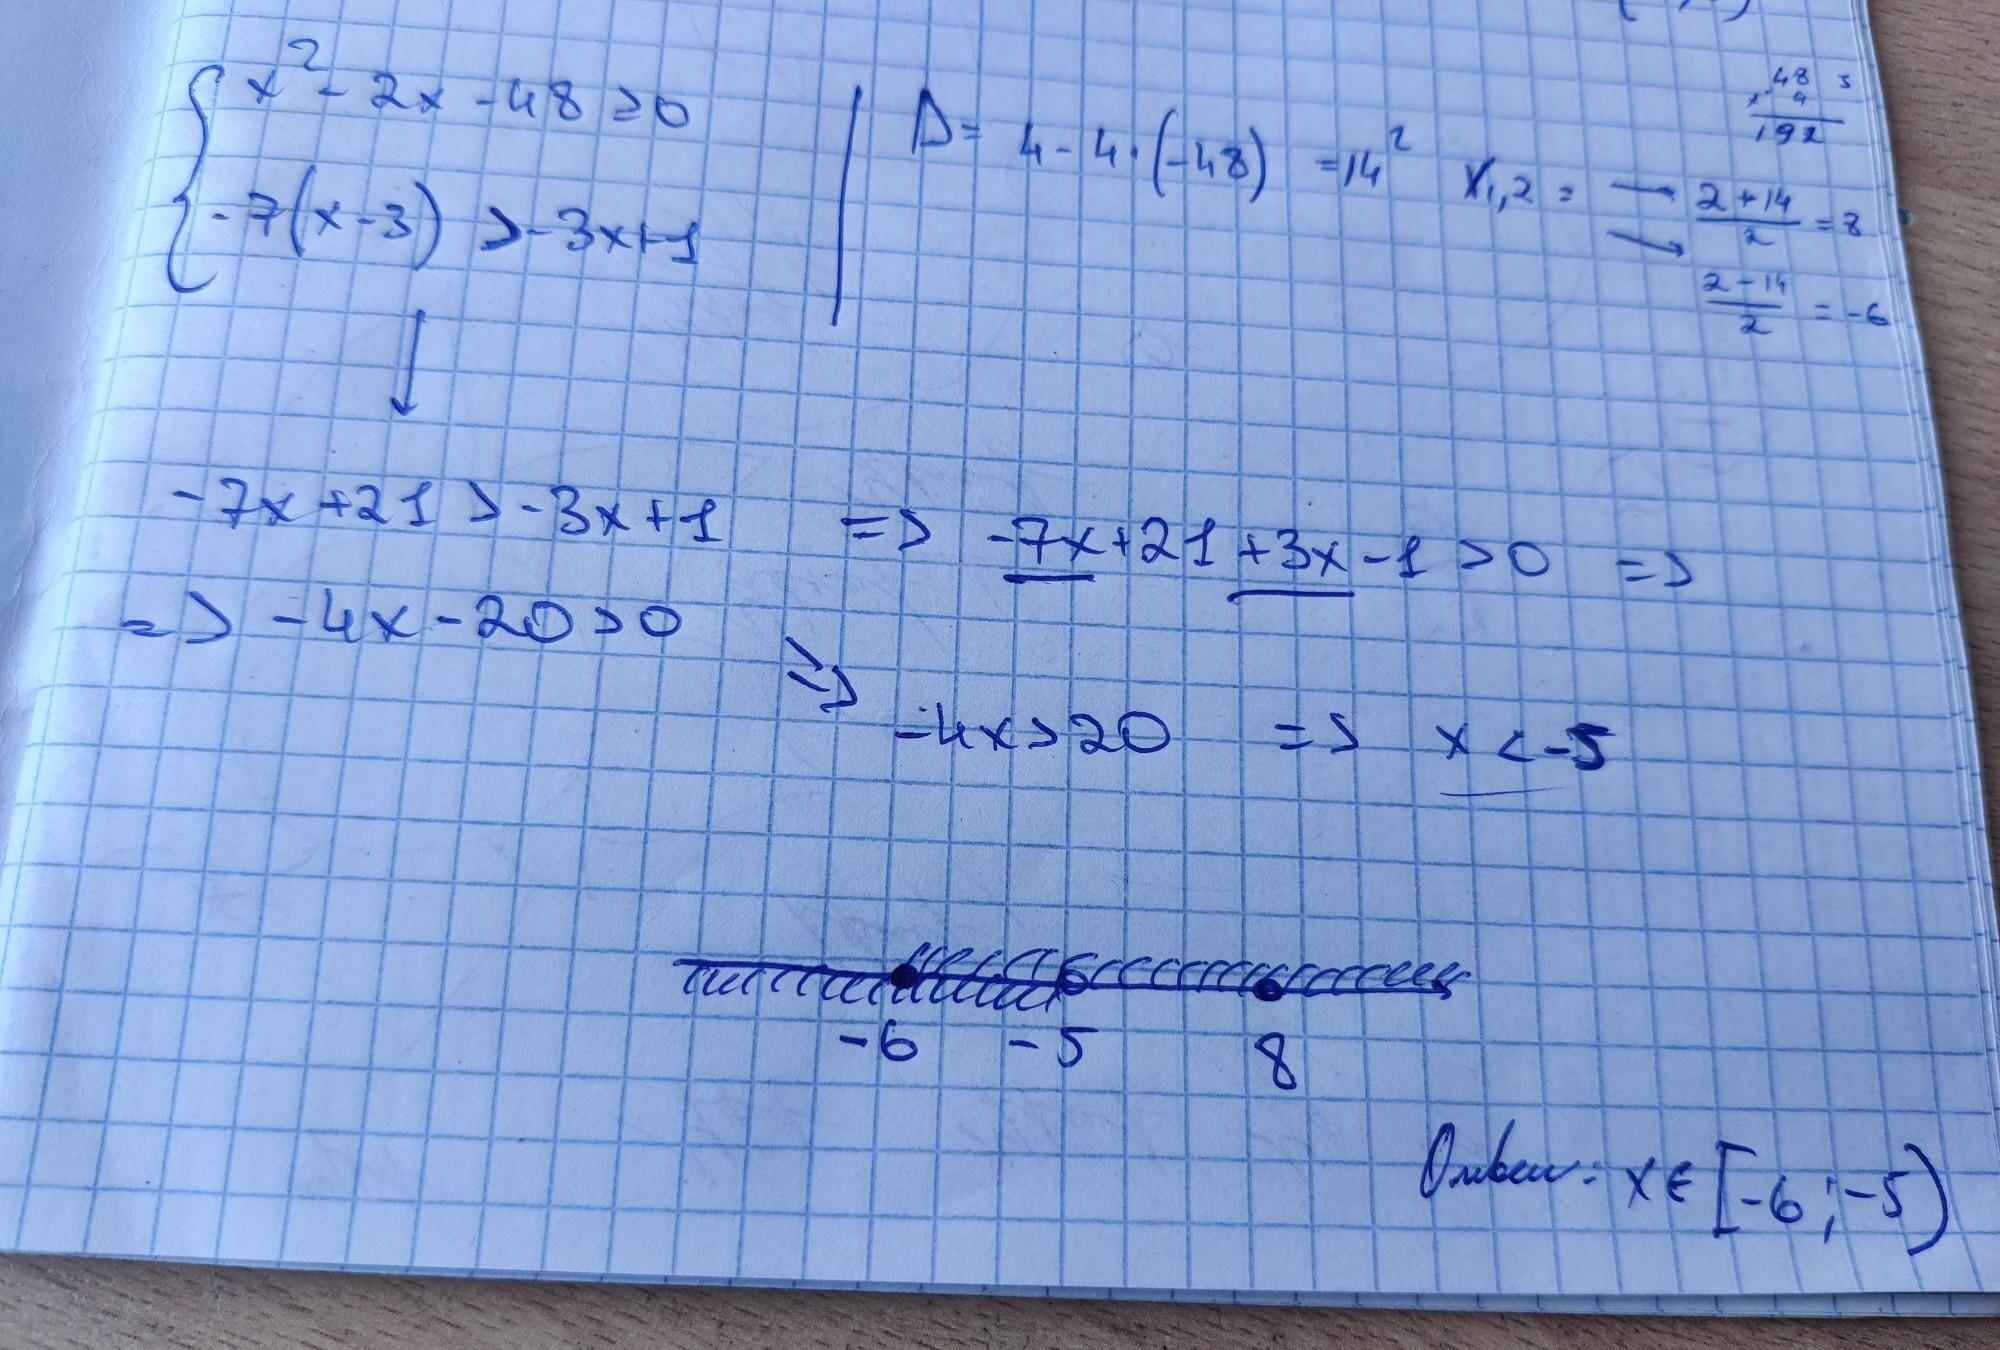 x² - 2x - 48 ≥ 0
-7(x-3) > -3x+1
D = 4 - 4·(-48) = 14²
x₁,₂ = → (2+14)/2 = 8
→ (2-14)/2 = -6
48
× 4
192
-7x+21 > -3x+1 => -7x+21+3x-1 > 0 =>
=> -4x-20 > 0
=> -4x > 20 => x < -5
-6 -5 8
Ответ: x ∈ [-6; -5)